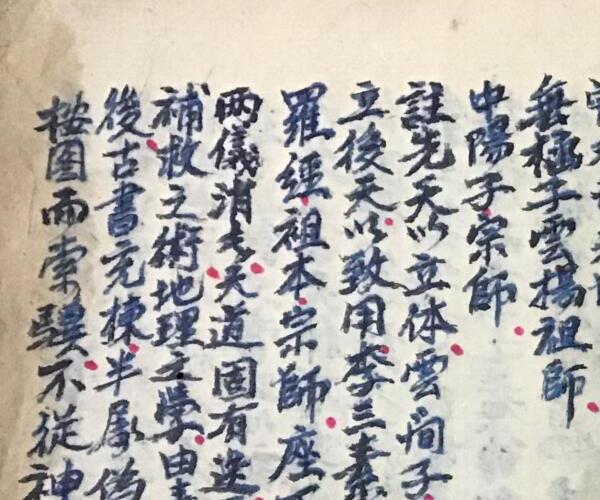 無極子雲揚祖師
中陽子宗師
註先天以立体雲間子
立後天以致用李三素
羅經祖本宗師座
两儀消长天道固有迭
補救之術地理之學由
後古書充棟半属偽
按图而索驥不從神